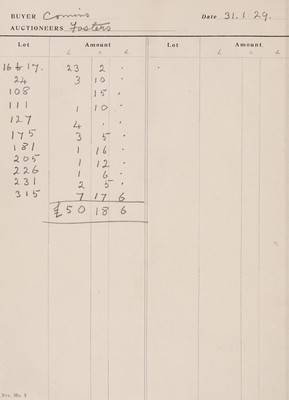 BUYER Comins Date 31.1.29.
AUCTIONEERS Fosters
Lot Amount Lot Amount
£ s d £ s d
16 & 17. 23 2 .
24 3 10 .
108 15 .
111 1 10 .
127 4 . .
175 3 5 .
181 1 16 .
205 1 12 .
226 1 6 .
231 2 5 .
315 7 17 6
£50 18 6